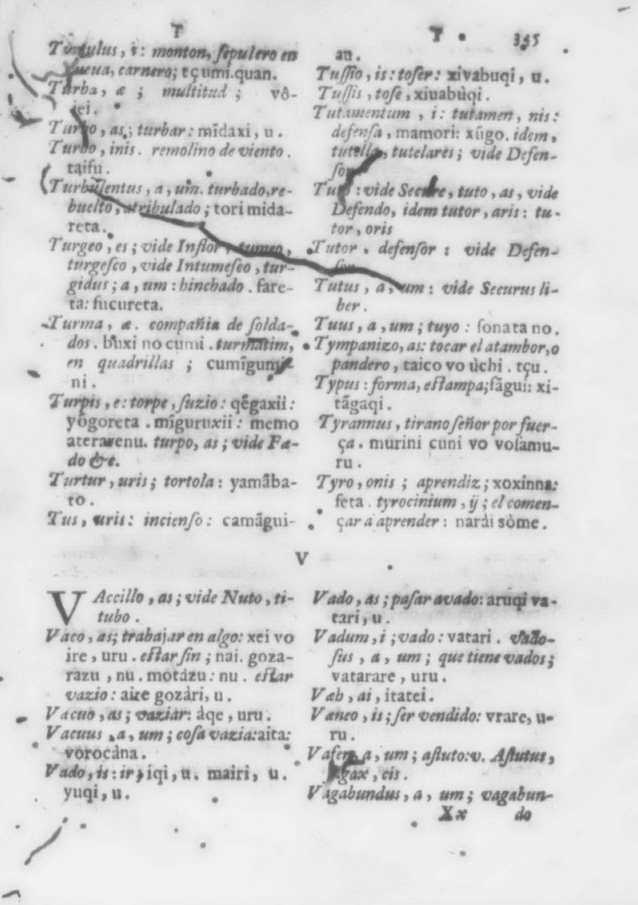 T
T . 355
Tumulus, i: monton, sepulcro en
cueua, carnero; tçumi.quan.
Turba, æ; multitud; vô-
jei.
Turbo, as; turbar: mĩdaxi, u.
Turbo, inis. remolino de viento.
taifu.
Turbulentus, a, um. turbado, re-
buelto, atribulado; tori mida-
reta.
Turgeo, es; vide Inflor, tumeo,
turgesco, vide Intumesco, tur-
gidus; a, um: hinchado. fare-
ta: fucureta.
Turma, æ. compañia de solda-
dos. buxi no cumi. turmatim,
en quadrillas; cumĩgumi
ni.
Turpis, e: torpe, suzio: qẽgaxii:
yõgoreta. mĩguruxii: memo
aterarenu. turpo, as; vide Fa-
do &c.
Turtur, uris; tortola: yamãba-
to.
Tus, uris: incienso: camãgui-
au.
Tussio, is: toser: xivabuqi, u.
Tussis, tose, xiuabuqi.
Tutamentum, i: tutamen, nis:
defensa, mamori: xũgo. idem,
tutella, tutelares; vide Defen-
sor.
Tuto: vide Secure, tuto, as, vide
Defendo, idem tutor, aris: tu-
tor, oris
Tutor. defensor: vide Defen-
sor.
Tutus, a, um: vide Securus li-
ber.
Tuus, a, um; tuyo: sonata no.
Tympanizo, as: tocar el atambor, o
pandero, taico vo ùchi. tçu.
Typus: forma, estampa; fãgui: xi-
tãgaqi.
Tyrannus, tirano señor por fuer-
ça. murini cuni vo vosamu-
ru.
Tyro, onis; aprendiz; xoxinna:
feta. tyrocinium, ij; el comen-
çar a aprender: narài sòme.
V
VAccillo, as; vide Nuto, ti-
tubo.
Vaco, as; trabajar en algo: xei vo
ire, uru. estar sin; nai. goza-
razu, nu. motàzu: nu. estar
vazio: aite gozàri, u.
Vacuo, as; vaziar: àqe, uru.
Vacuus, a, um; cosa vazia: aita:
vorocàna.
Vado, is: ir; iqi, u. mairi, u.
yuqi, u.
Vado, as; pasar a vado: aruqi va-
tari, u.
Vadum, i; vado: vatari. vado-
sus, a, um; que tiene vados;
vatarare, uru.
Væh, ai, itatei.
Væneo, is; ser vendido: vrare, u-
ru.
Vafer, a, um; astuto: v. Astutus,
sagax, cis.
Vagabundus, a, um; vagabun-
Xx do